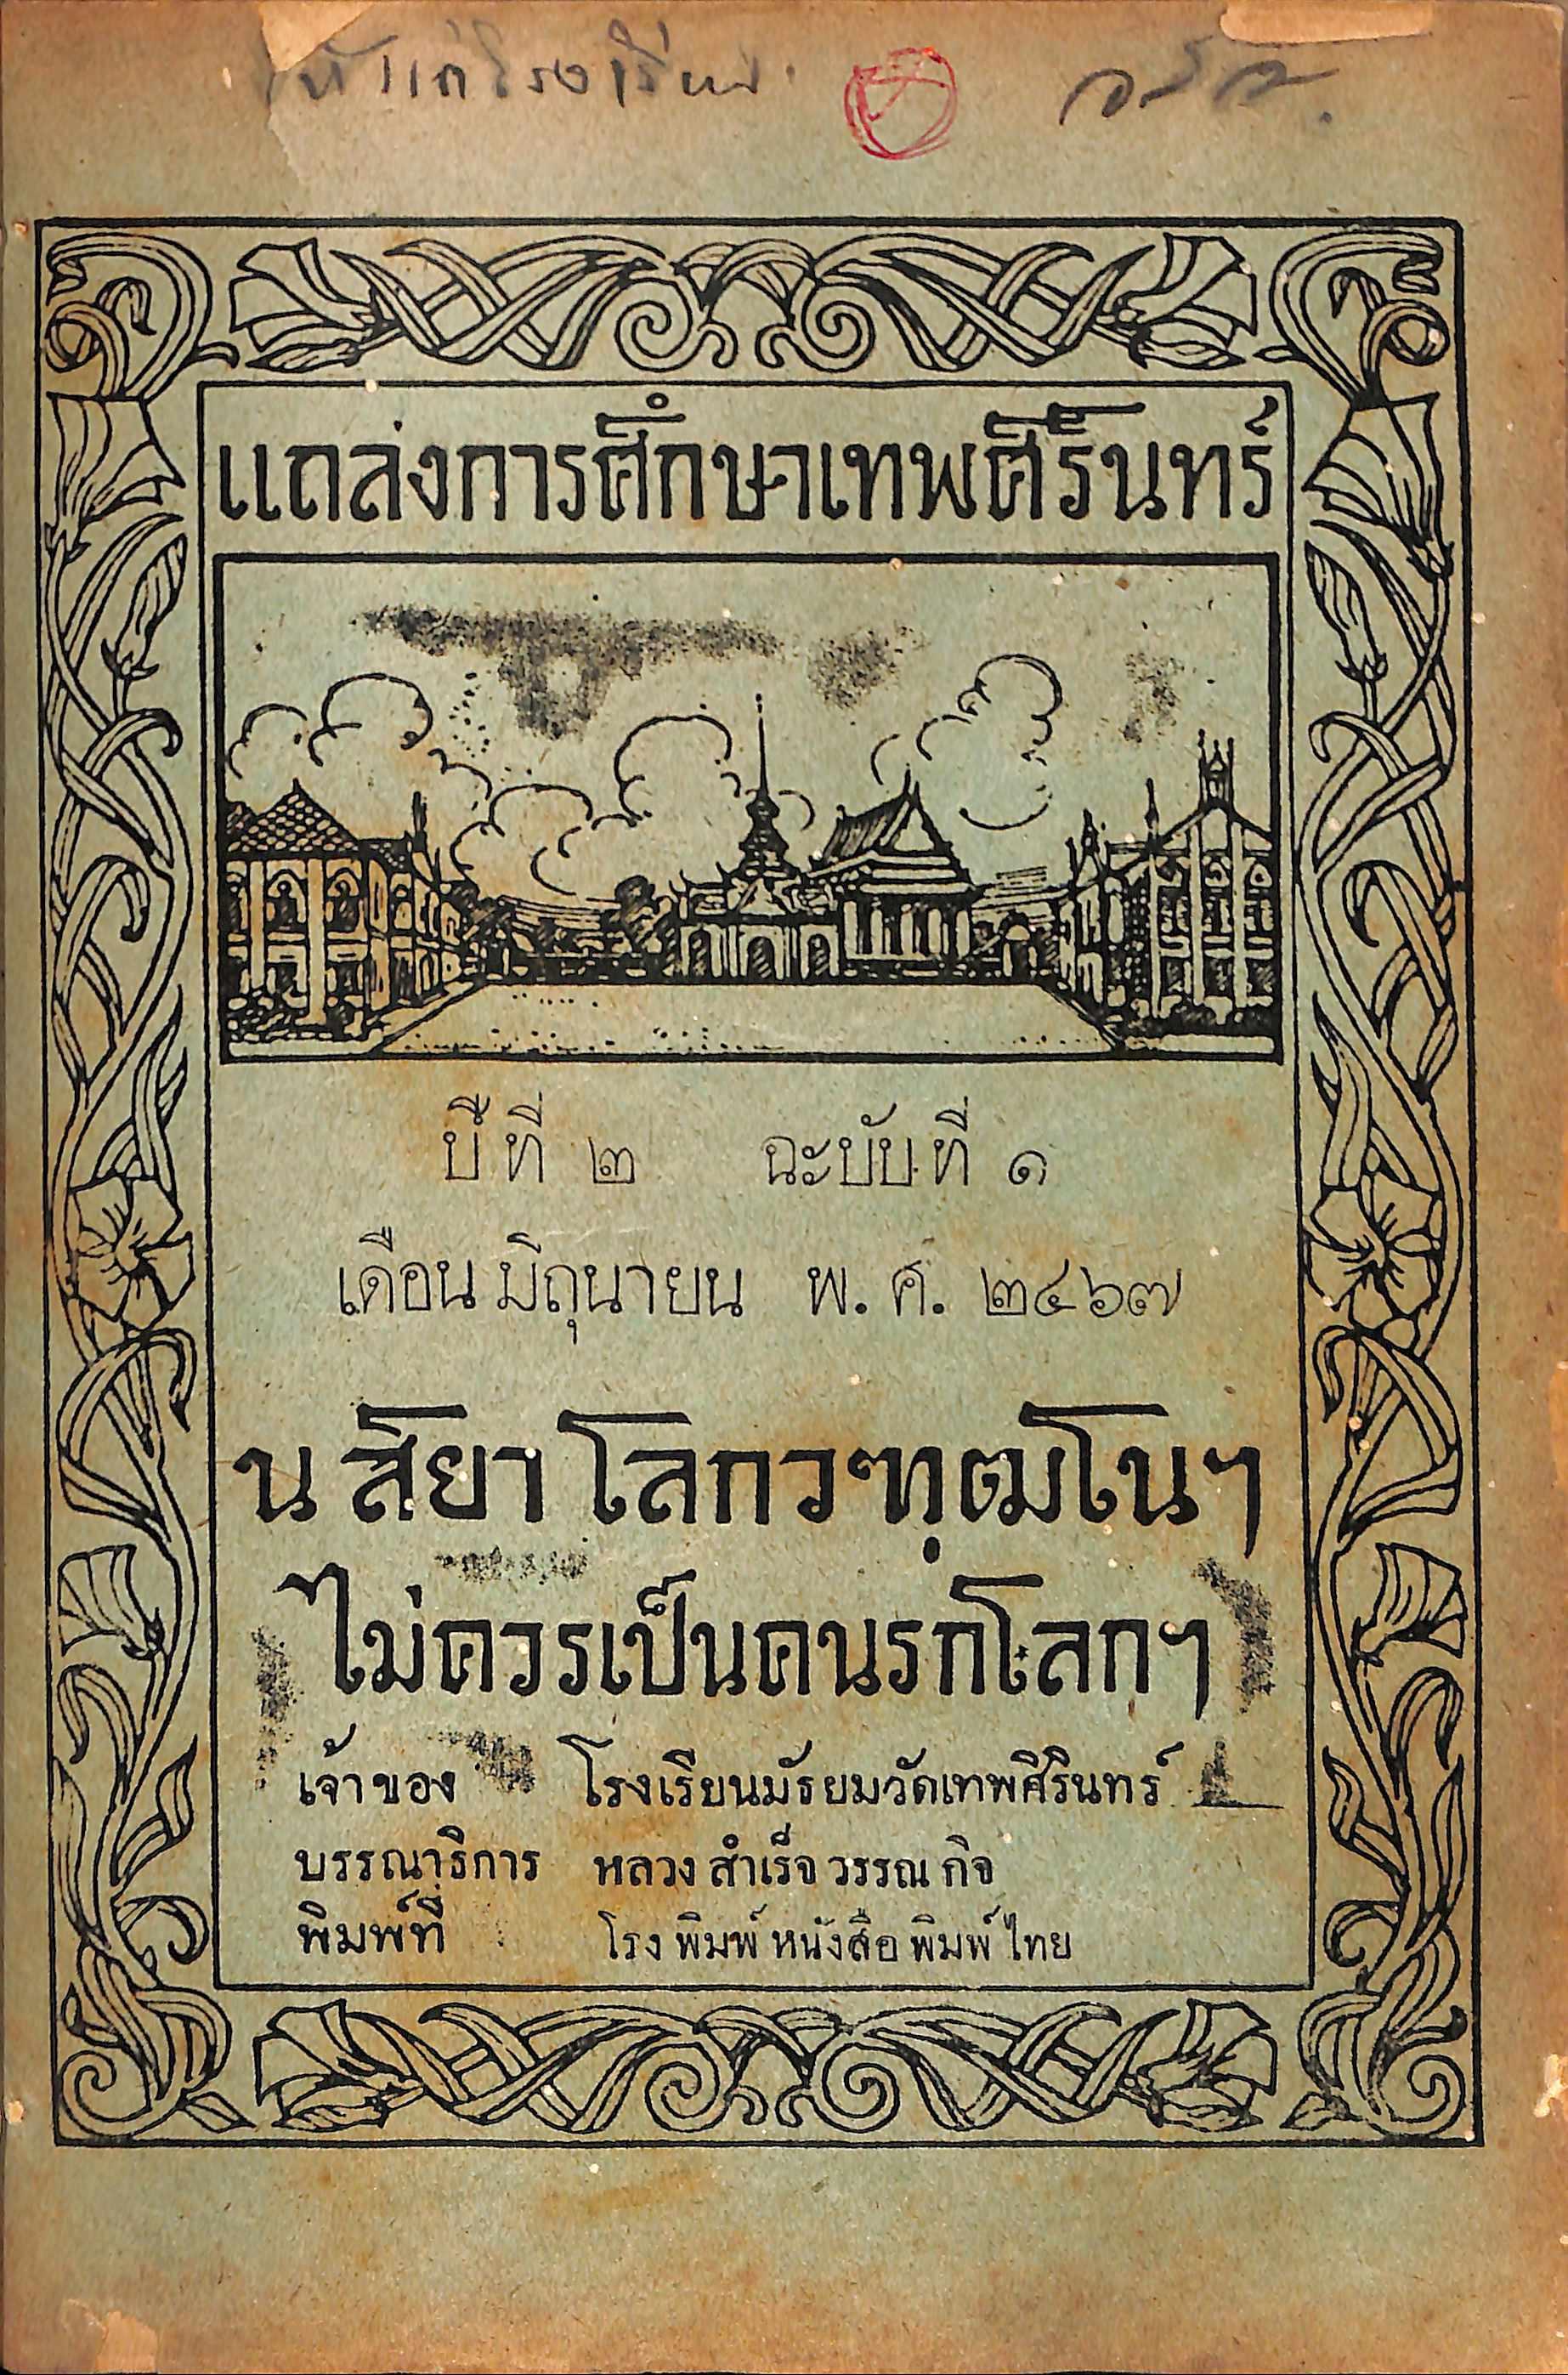 ให้แก่โรงเรียน
แถลงการศึกษาเทพศิรินทร์
ปีที่ ๒ ฉะบับที่ ๑
เดือน มิถุนายน พ.ศ. ๒๔๖๗
น สิยา โลกวฑฺฒโนฯ
ไม่ควรเป็นคนรกโลกฯ
เจ้าของ โรงเรียนมัธยมวัดเทพศิรินทร์
บรรณาธิการ หลวง สำเร็จ วรรณ กิจ
พิมพ์ที่ โรง พิมพ์ หนังสือ พิมพ์ ไทย